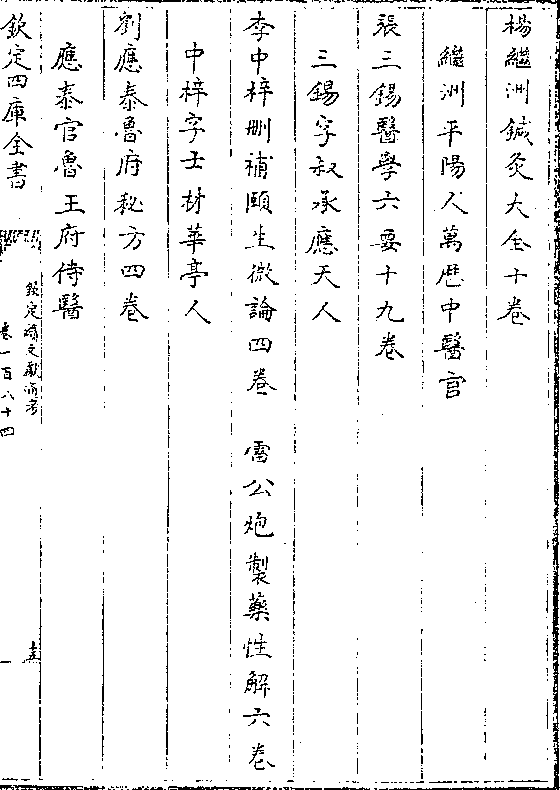 楊繼洲鍼灸大全十卷
繼洲平陽人萬厯中醫官
張三錫醫學六要十九卷
三錫字叔承應天人
李中梓刪補頤生微論四卷　雷公炮製藥性解六卷
中梓字士材華亭人
劉應泰魯府秘方四卷
應泰官魯王府侍醫
欽定四庫全書
欽定續文獻通考
卷一百八十四